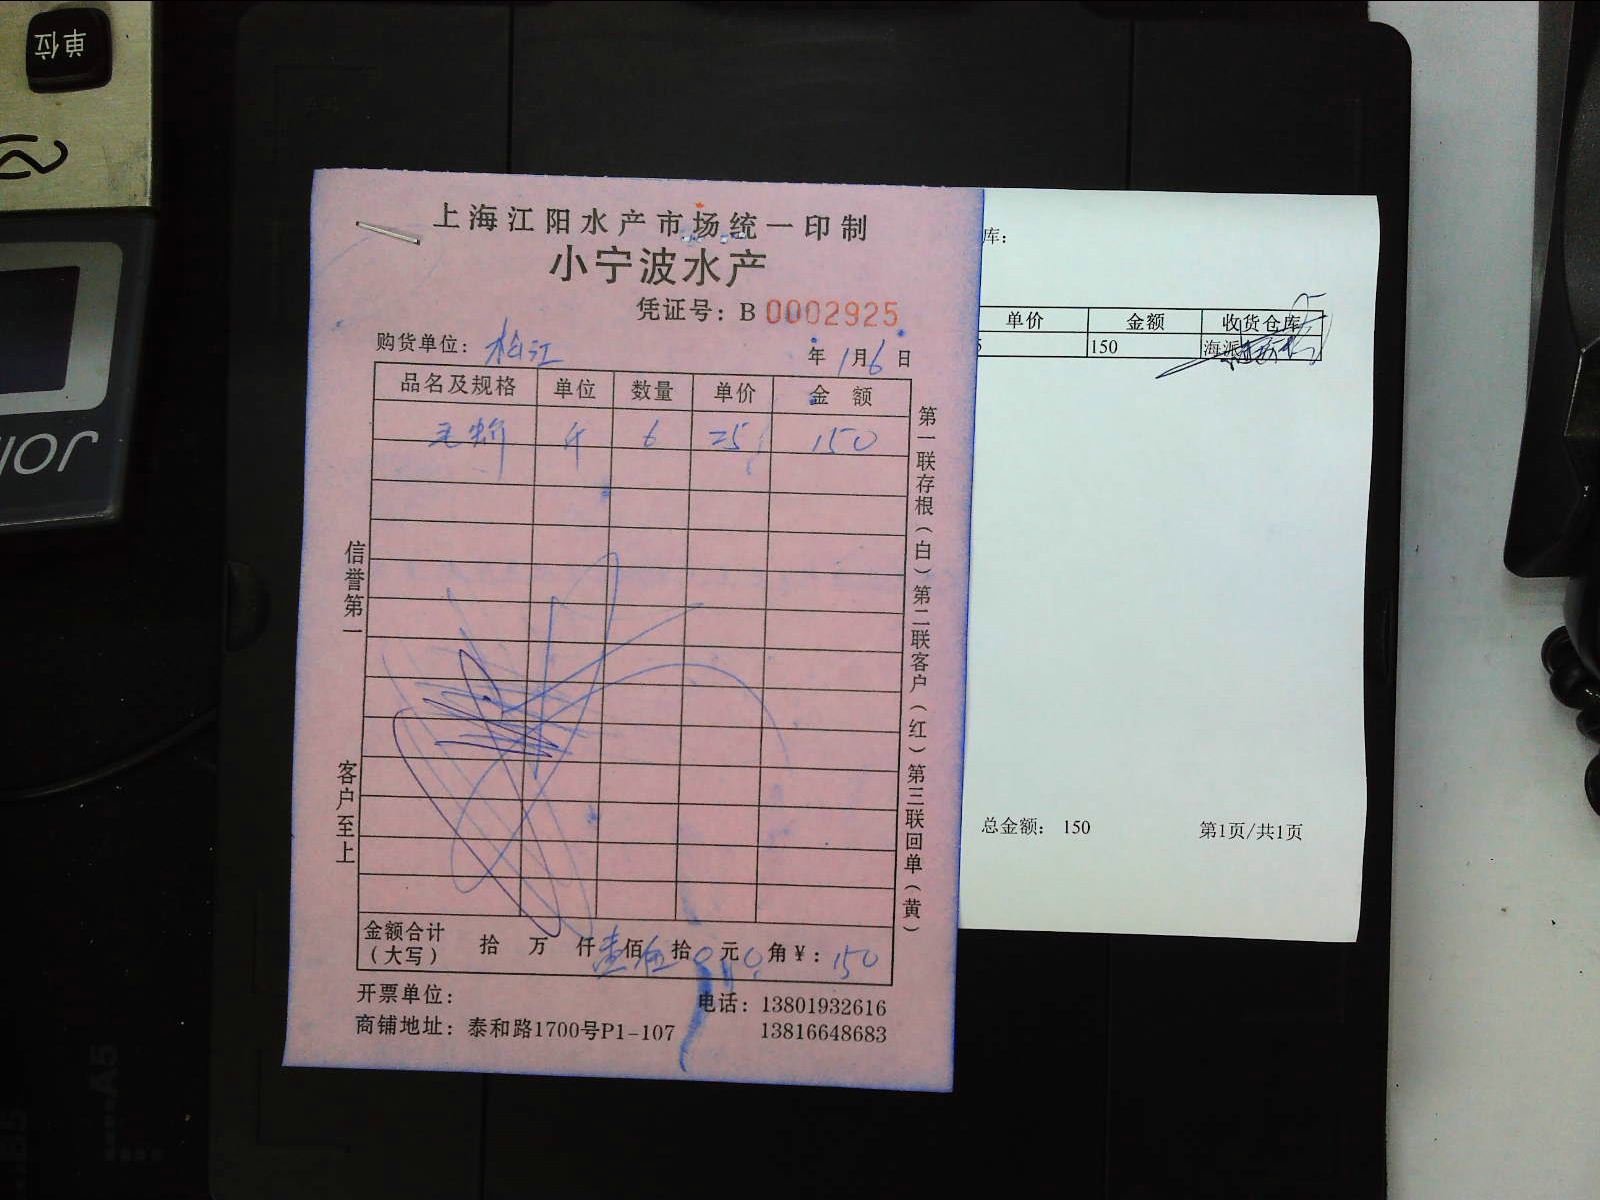 单位
上海江阳水产市场统一印制
小宁波水产
凭证号：B 0002925
购货单位：松江 年1月6日
品名及规格 单位 数量 单价 金额
斤 6 25 150
信誉第一
客户至上
第一联存根（白）第二联客户（红）第三联回单（黄）
金额合计（大写） 拾 万 仟壹佰伍拾0元0角￥：150
开票单位： 电话：13801932616
商铺地址：泰和路1700号P1-107 13816648683
库：
单价 金额 收货仓库
5 150 海派
总金额： 150 第1页/共1页
A5
B5